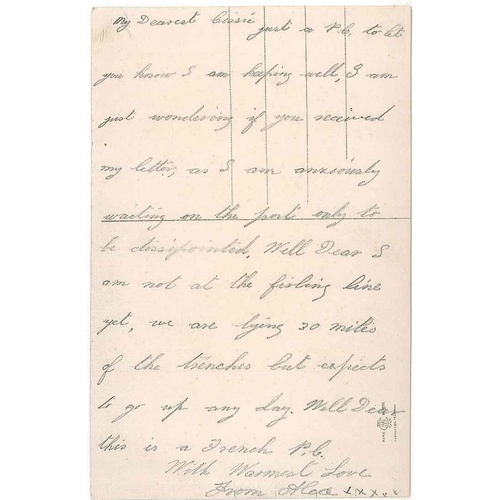 My Dearest Cissie just a P.C. to let
you know I am keeping well, I am
just wondering if you recived
my letter, as I am anxiously
waiting on the post only to
be dissipointed. Well Dear I
am not at the firling line
yet, we are lying 30 miles
of the trenches but expects
to go up any day. Well Dear
this is a French P.C.
With Warmest Love
From Alec xxxx